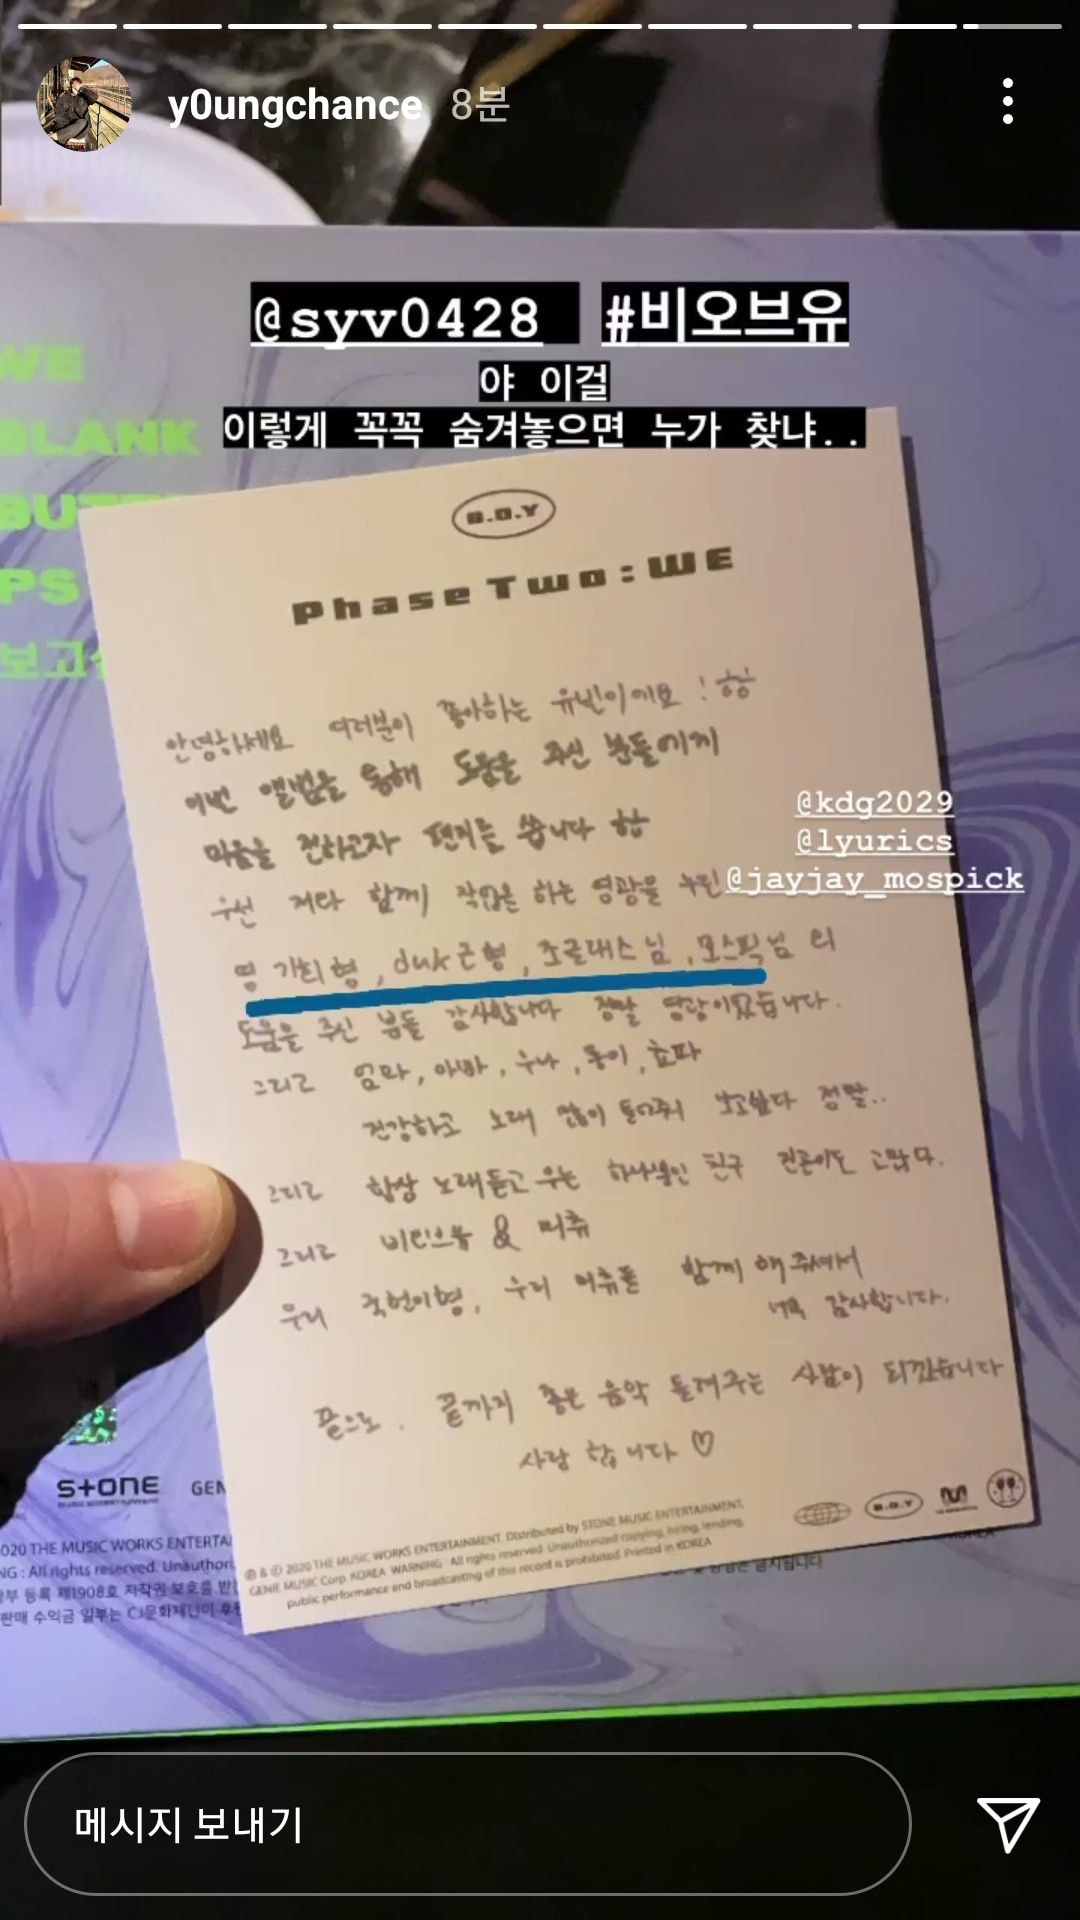 y0ungchance 8분
@syv0428 #비오브유
야 이걸
이렇게 꼭꼭 숨겨놓으면 누가 찾냐..
WE
BLANK
PS
B.O.Y
Phase Two : WE
안녕하세요 여러분이 좋아하는 유빈이에요! 핫
이번 앨범을 통해 도움을 주신 분들에게
마음을 전하고자 편지를 씁니다 핫
@kdg2029
@lyurics
우선 저와 함께 작업을 하는 영광을 누린
@jayjay_mospick
영 기회형, duk근형, 조글래스님, 모스픽님 외
도움을 주신 분들 감사합니다 정말 영광이었습니다.
그리고 엄마, 아빠, 누나, 동이, 효파
건강하고 노래 많이 들어줘 보고싶다 정말..
그리고 항상 노래듣고 우는 하나뿐인 친구 건곤이도 고맙다.
그리고 비오브유 & 머츄
우리 국헌이형, 우리 머츄들 함께 해주셔서
너무 감사합니다.
끝으로. 끝까지 좋은 음악 들려주는 사람이 되겠습니다
사랑합니다 ♡
STONE
GEN
℗ & © 2020 THE MUSIC WORKS ENTERTAINMENT. Distributed by STONE MUSIC ENTERTAINMENT,
GENIE MUSIC Corp. KOREA WARNING : All rights reserved. Unauthorized copying, hiring, lending,
public performance and broadcasting of this record is prohibited. Printed in KOREA
B.O.Y
020 THE MUSIC WORKS ENTERTAI
NG : All rights reserved. Unauthor
등록 제1908호 저작권 보호를 받
판매 수익금 일부는 CJ문화재단이 후원
메시지 보내기